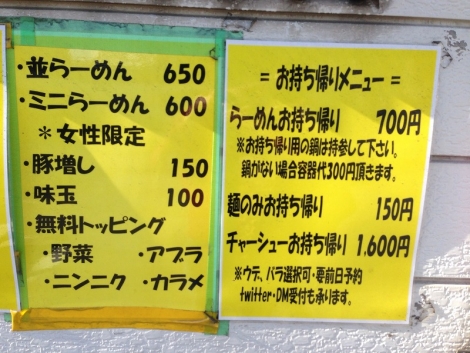 ・並らーめん 650
・ミニらーめん 600
＊女性限定
・豚増し 150
・味玉 100
・無料トッピング
・野菜 ・アブラ
・ニンニク ・カラメ
= お持ち帰りメニュー =
らーめんお持ち帰り 700円
※お持ち帰り用の鍋は持参して下さい。
鍋がない場合容器代300円頂きます。
麺のみお持ち帰り 150円
チャーシューお持ち帰り 1.600円
※ウデ、バラ選択可・要前日予約
twitter・DM受付も承ります。